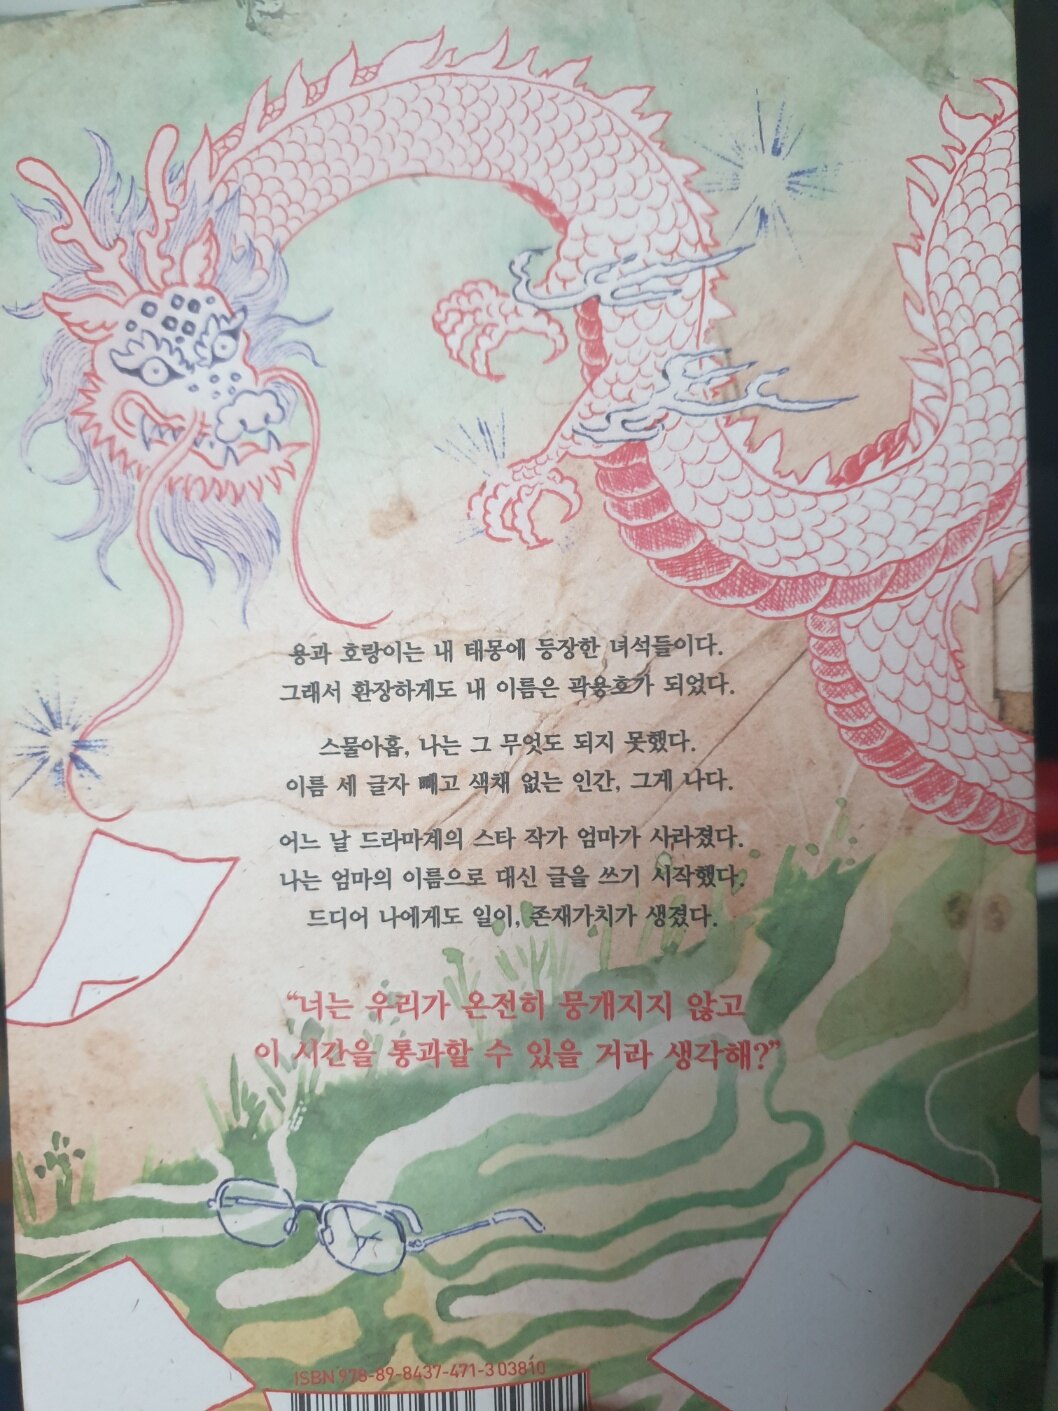 용과 호랑이는 내 태몽에 등장한 녀석들이다.
그래서 환장하게도 내 이름은 곽용호가 되었다.
스물아홉, 나는 그 무엇도 되지 못했다.
이름 세 글자 빼고 색채 없는 인간, 그게 나다.
어느 날 드라마계의 스타 작가 엄마가 사라졌다.
나는 엄마의 이름으로 대신 글을 쓰기 시작했다.
드디어 나에게도 일이, 존재가치가 생겼다.
“너는 우리가 온전히 뭉개지지 않고
이 시간을 통과할 수 있을 거라 생각해?”
ISBN 978-89-8437-471-3 03810